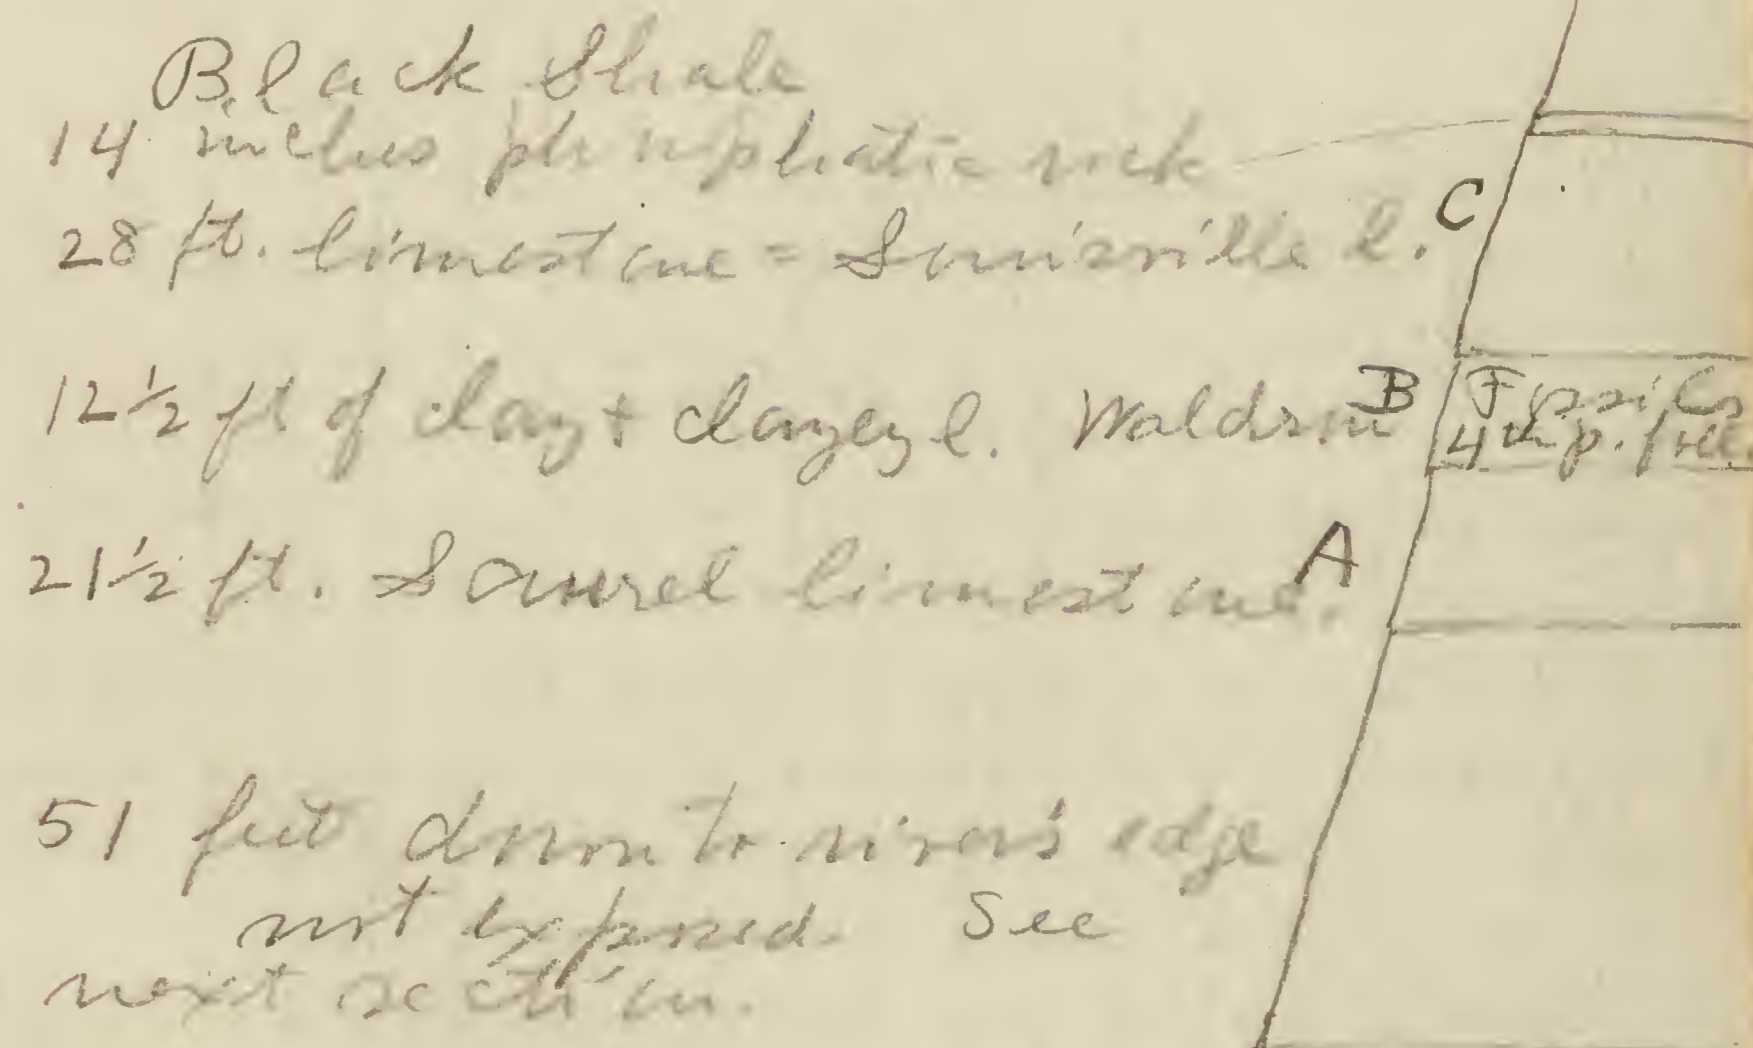 Black Shale
14 inches phosphatic rock
28 ft. limestone = Louisville l. C
12½ ft of clay + clayey l. Waldron B
4th p.
21½ ft. Laurel limestone. A
51 feet down to river's edge
not exposed See
next section.